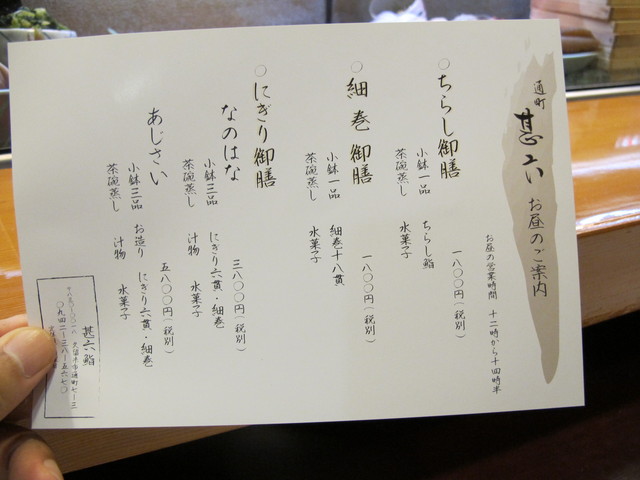 通町
甚六 お昼のご案内
お昼の営業時間 十二時から十四時半
○ちらし御膳
一八〇〇円(税別)
小鉢一品 ちらし鮨
茶碗蒸し 水菓子
○細巻御膳
一八〇〇円(税別)
小鉢一品 細巻十八貫
茶碗蒸し 水菓子
○にぎり御膳
なのはな
三八〇〇円(税別)
小鉢三品 にぎり六貫・細巻
茶碗蒸し 汁物 水菓子
あじさい
五八〇〇円(税別)
小鉢三品 お造り にぎり六貫・細巻
茶碗蒸し 汁物 水菓子
甚六鮨
久留米市通町七ー三
〇九四二ー三八ー五六七〇